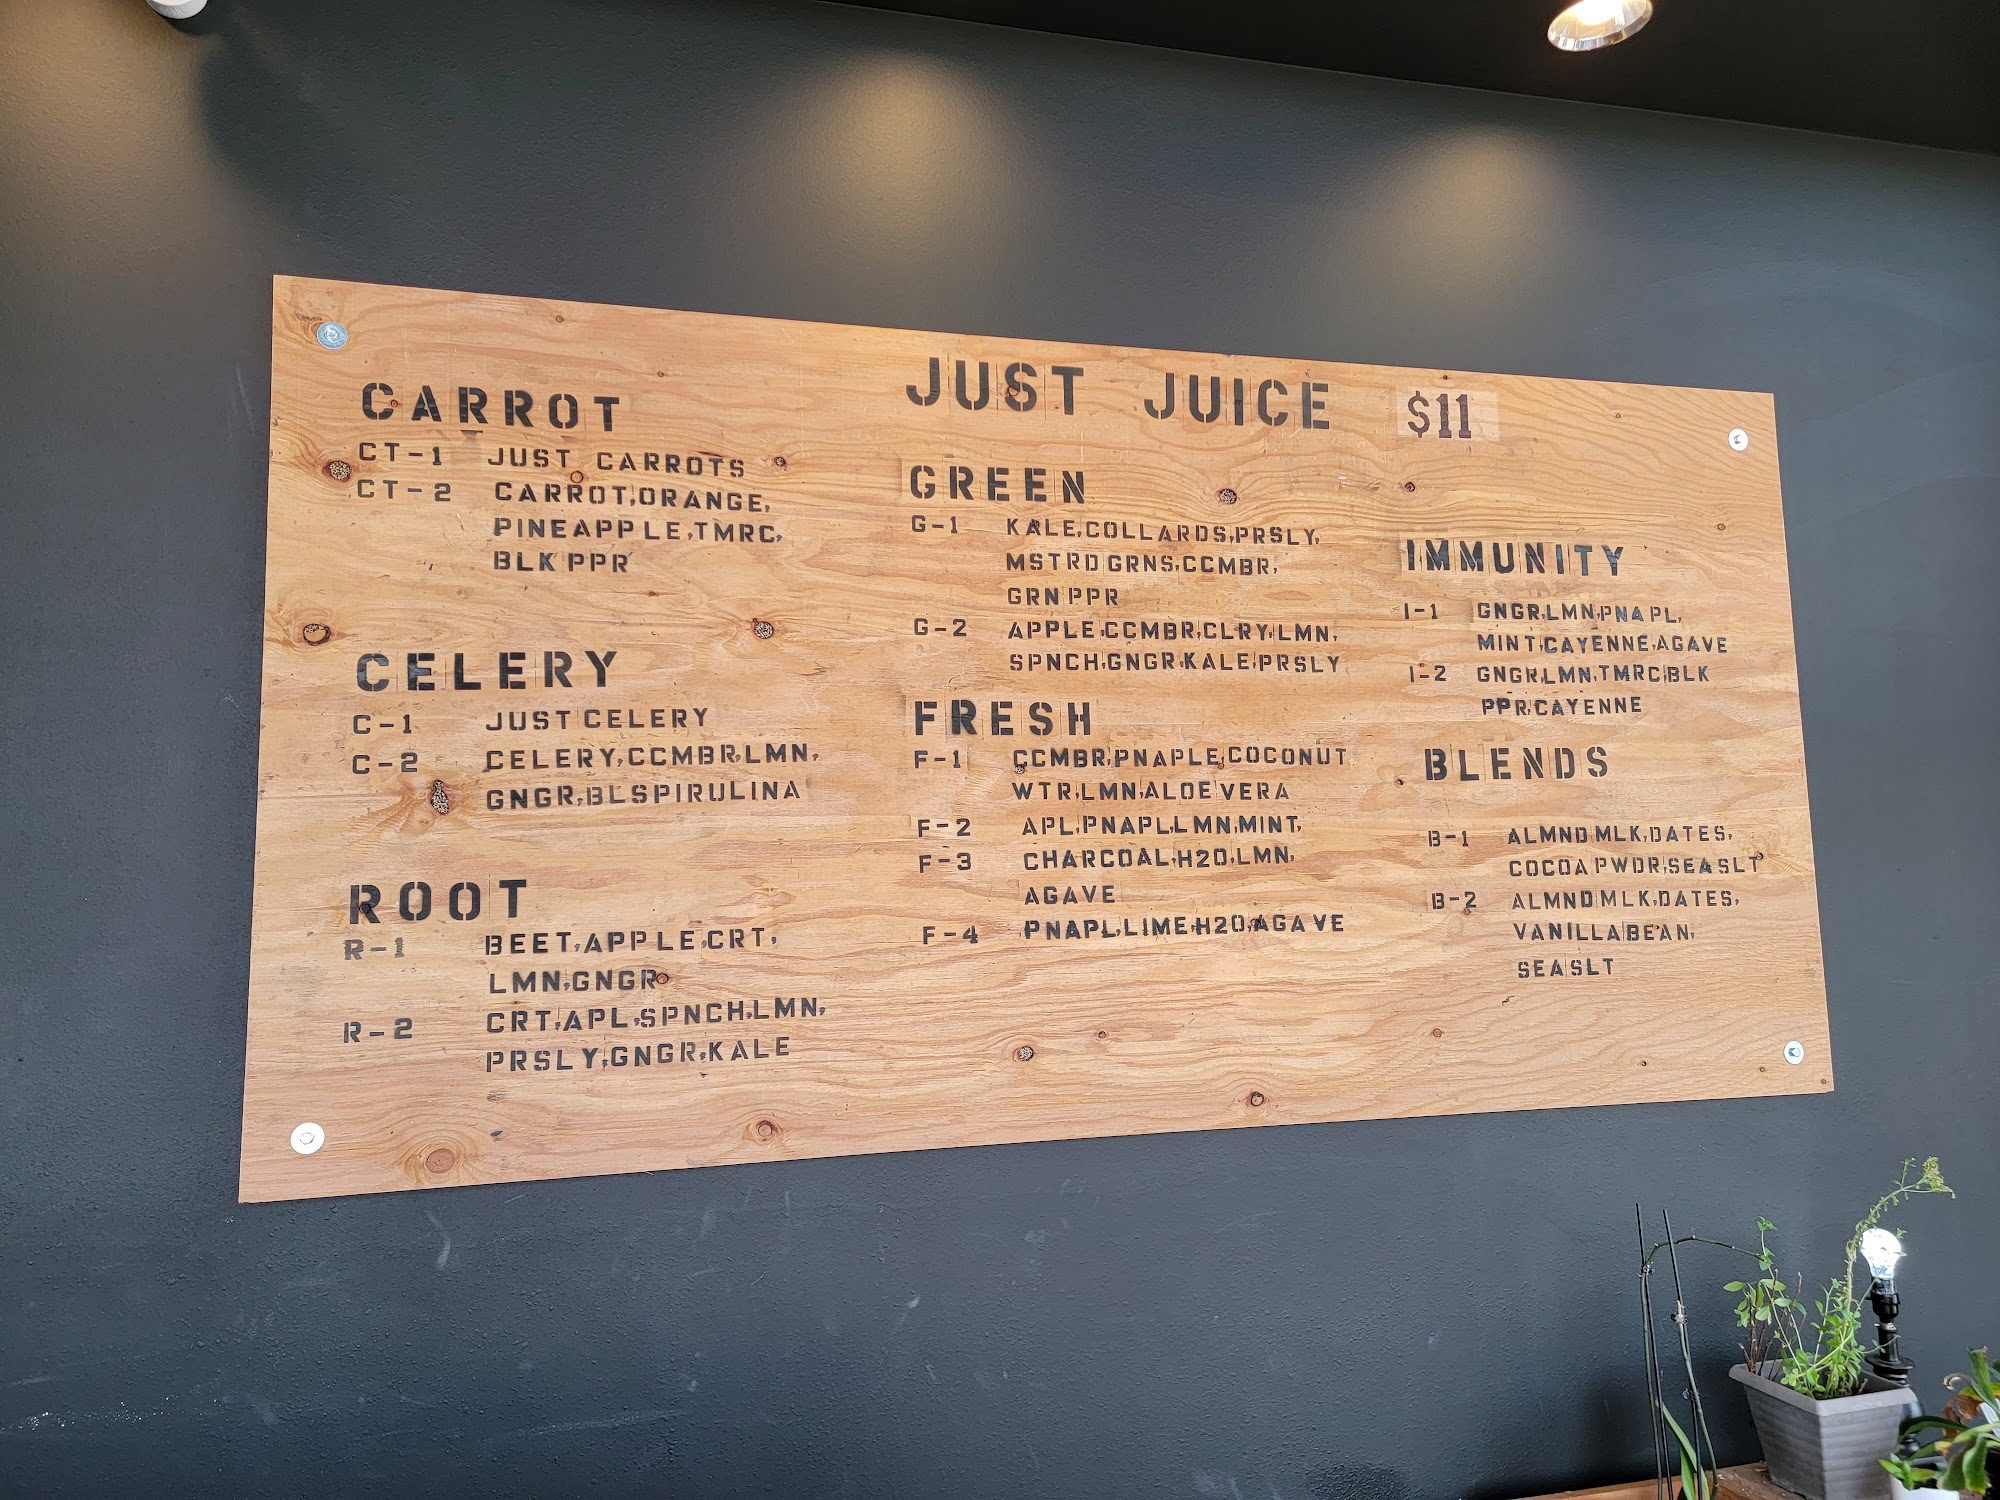 JUST JUICE $11
CARROT
CT-1 JUST CARROTS
CT-2 CARROT,ORANGE,
PINEAPPLE,TMRC,
BLK PPR
CELERY
C-1 JUST CELERY
C-2 CELERY,CCMBR,LMN,
GNGR,BLSPIRULINA
ROOT
R-1 BEET,APPLE,CRT,
LMN,GNGR
R-2 CRT,APL,SPNCH,LMN,
PRSLY,GNGR,KALE
GREEN
G-1 KALE,COLLARDS,PRSLY,
MSTRD GRNS,CCMBR,
GRN PPR
G-2 APPLE,CCMBR,CLRY,LMN,
SPNCH,GNGR,KALE,PRSLY
FRESH
F-1 CCMBR,PNAPLE,COCONUT
WTR,LMN,ALOE VERA
F-2 APL,PNAPL,LMN,MINT,
F-3 CHARCOAL,H2O,LMN,
AGAVE
F-4 PNAPL,LIME,H2O,AGAVE
IMMUNITY
I-1 GNGR,LMN,PNAPL,
MINT,CAYENNE,AGAVE
I-2 GNGR,LMN,TMRC,BLK
PPR,CAYENNE
BLENDS
B-1 ALMND MLK,DATES,
COCOA PWDR,SEA SLT
B-2 ALMND MLK,DATES,
VANILLA BEAN,
SEA SLT